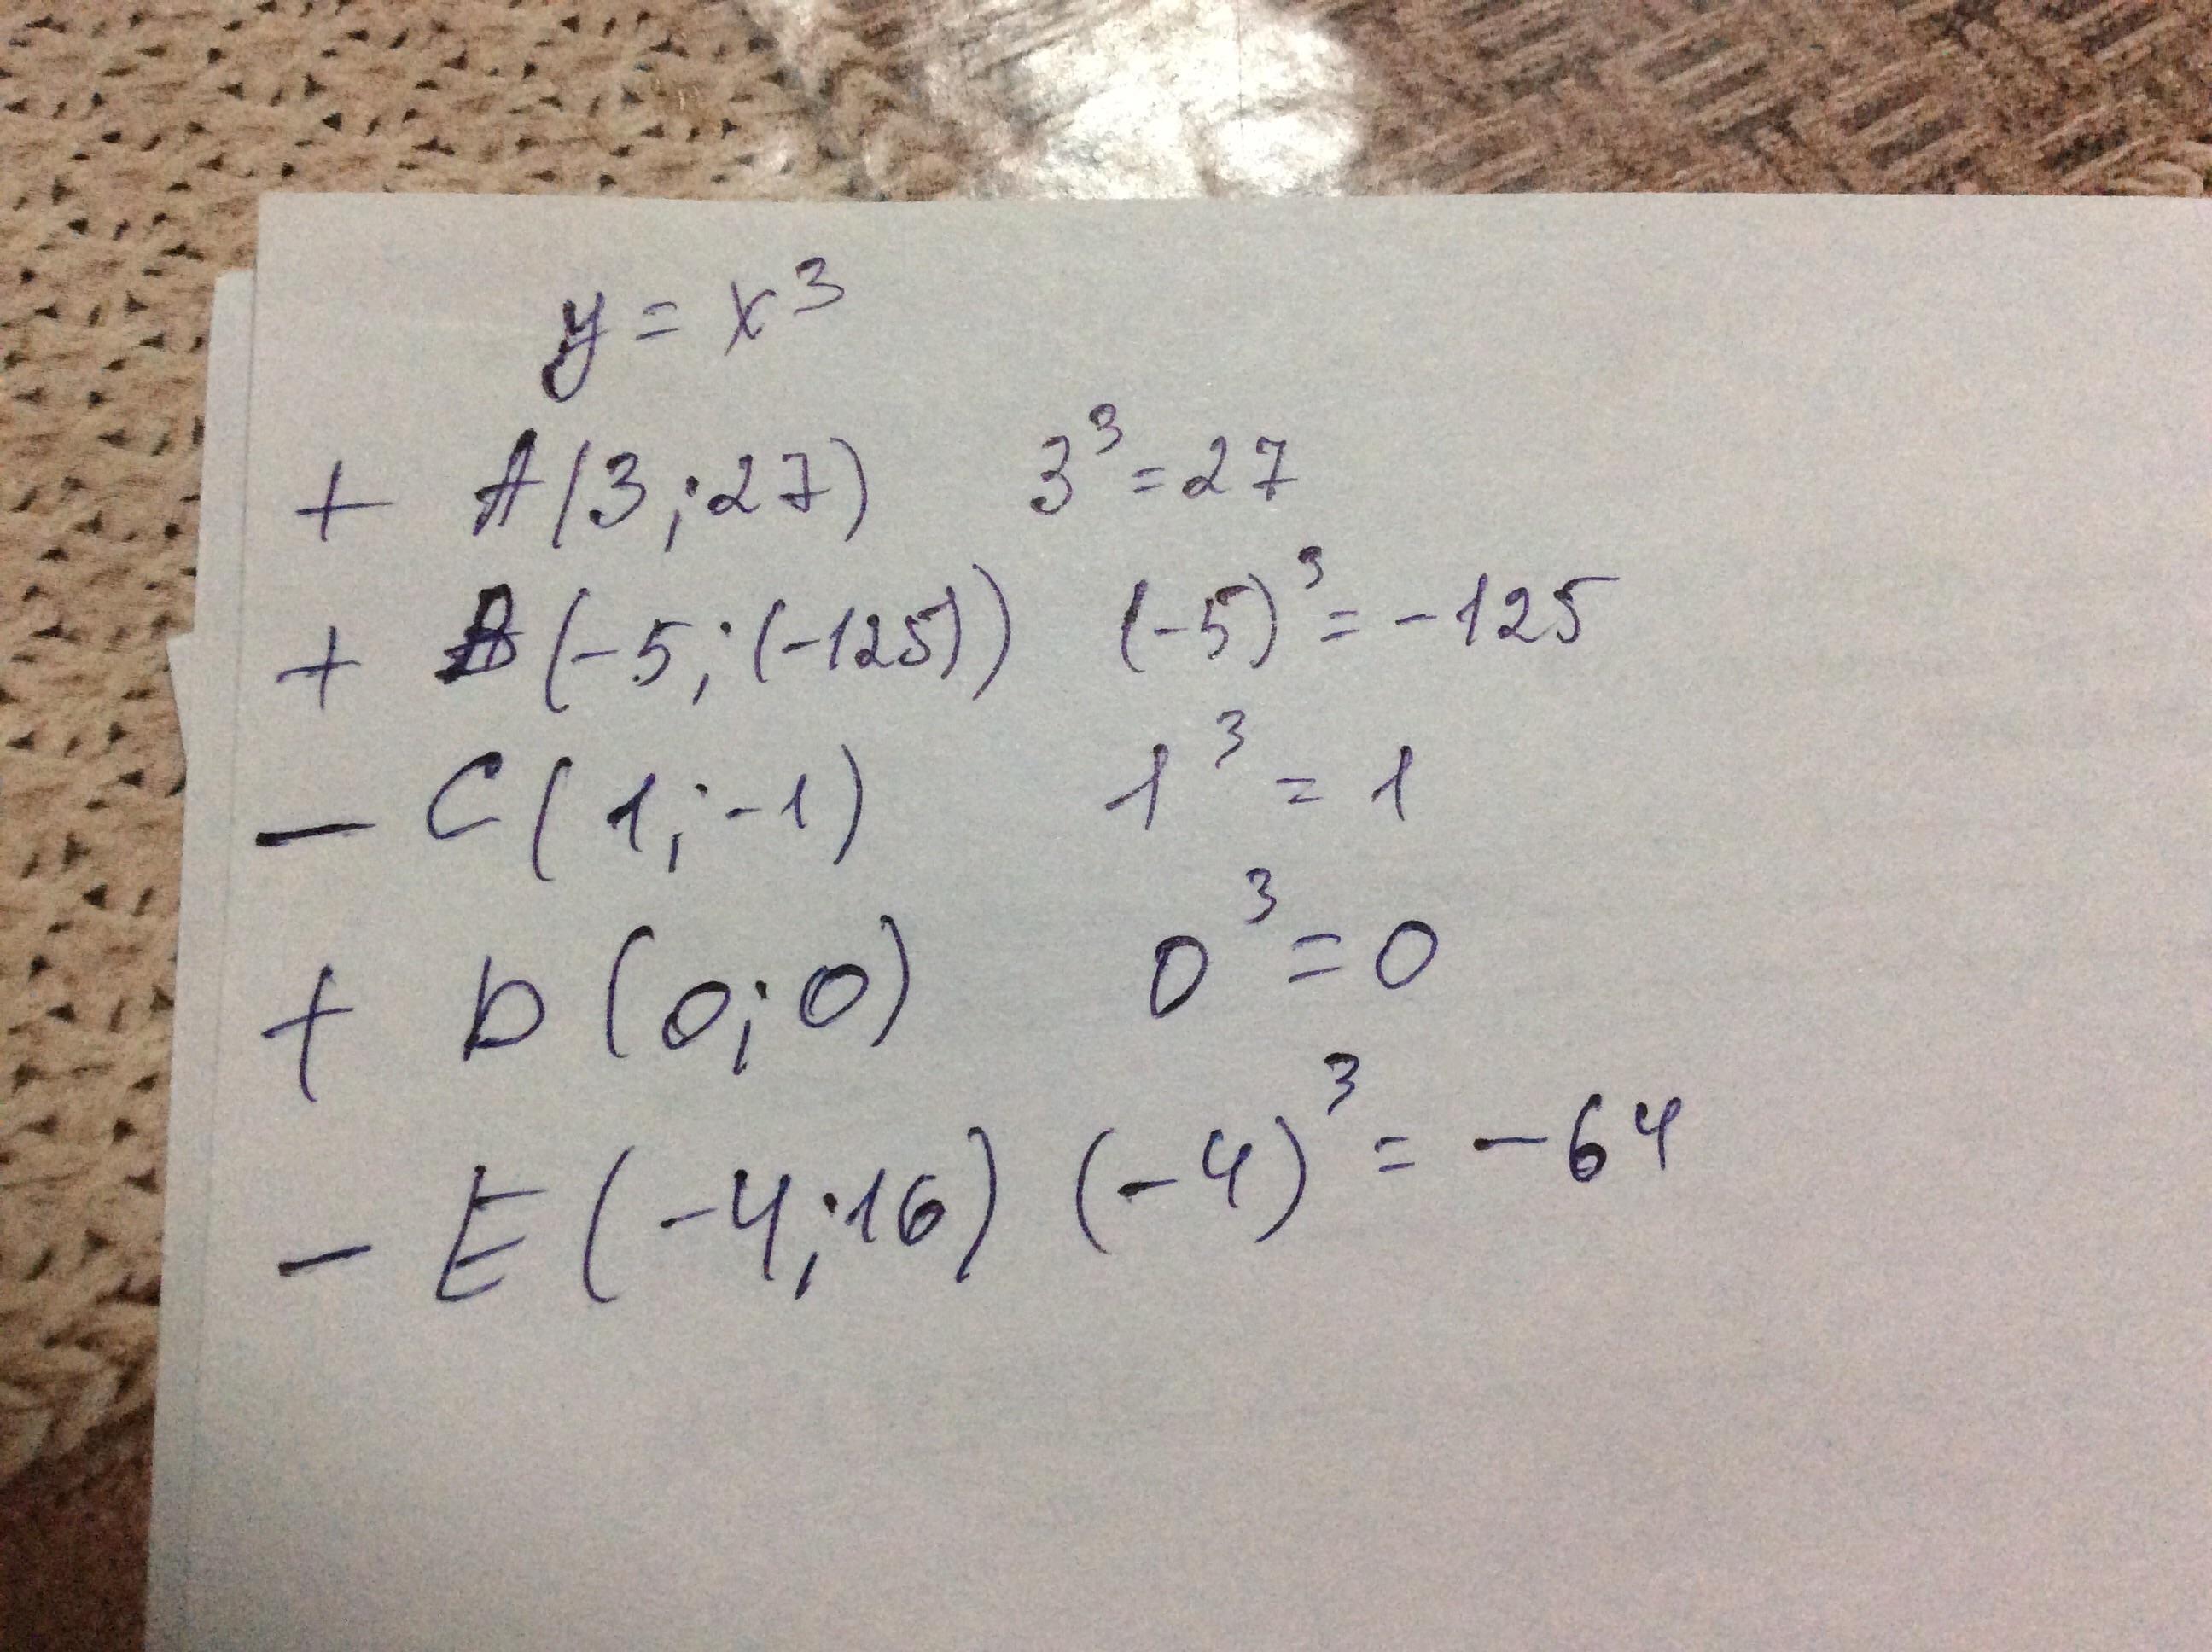 y = x³
+ A(3; 27) 3³ = 27
+ B(-5; (-125)) (-5)³ = -125
- C(1; -1) 1³ = 1
+ D(0; 0) 0³ = 0
- E(-4; 16) (-4)³ = -64